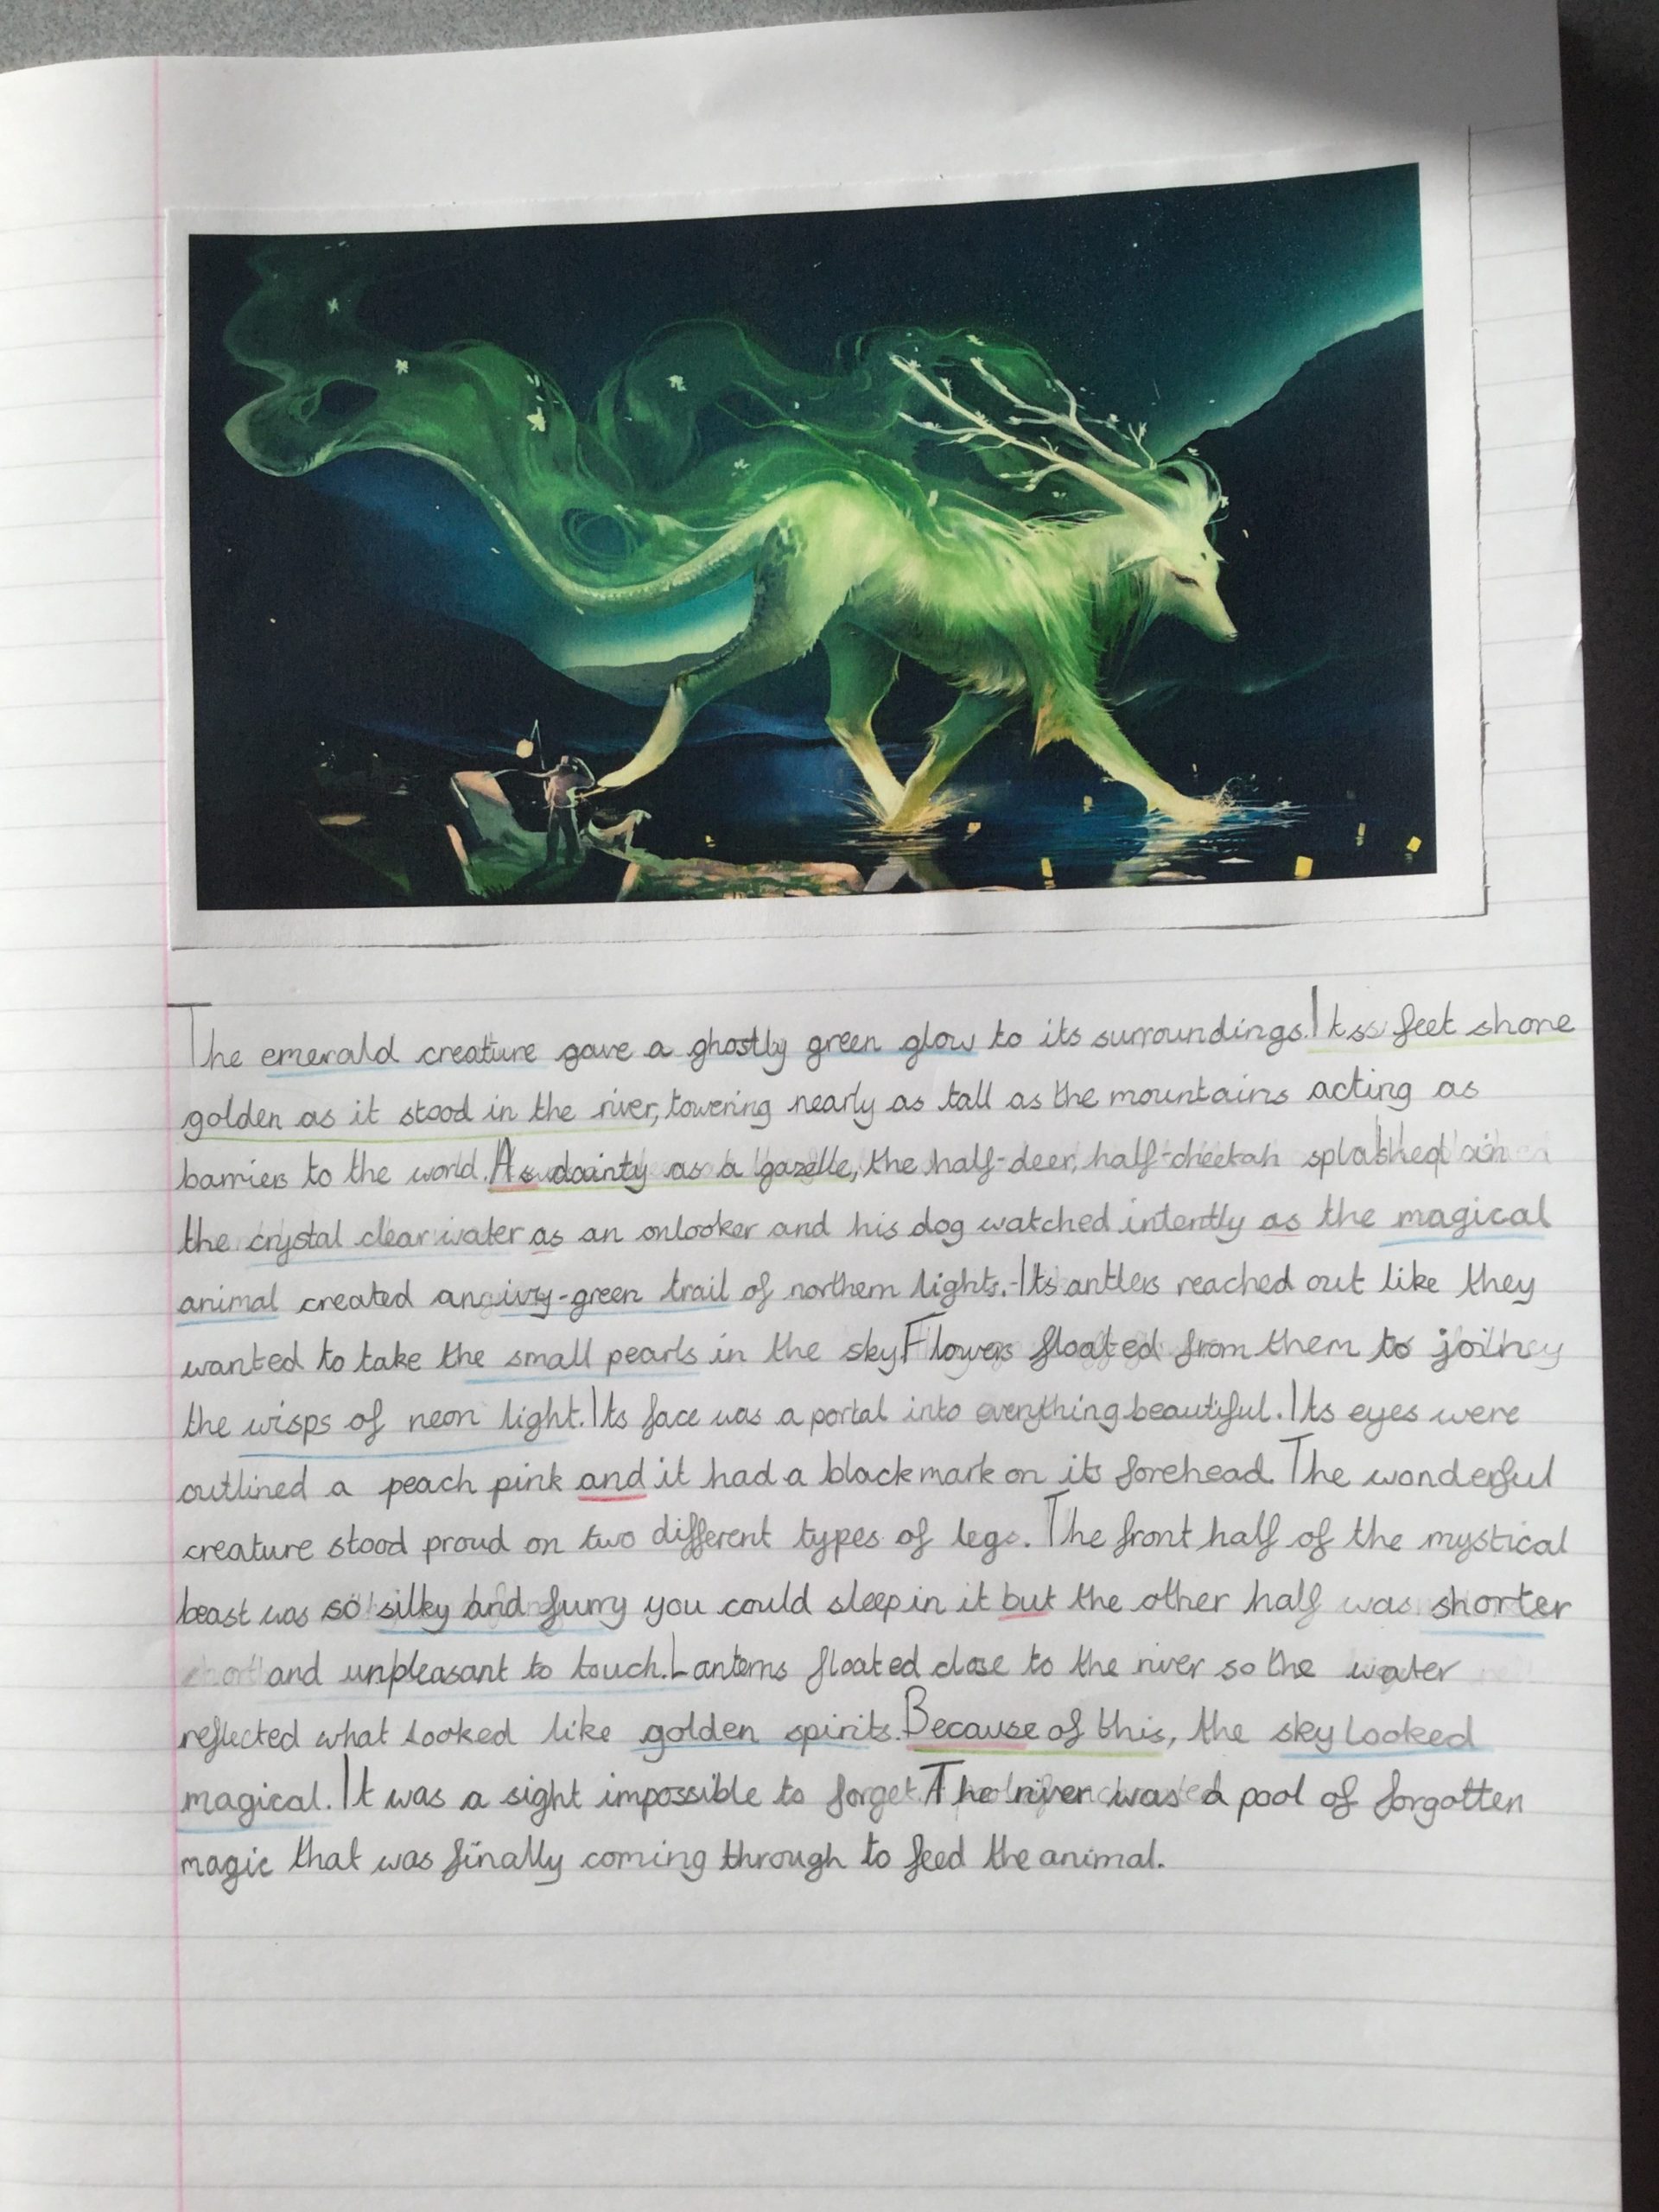 The emerald creature gave a ghostly green glow to its surroundings. Its feet shone
golden as it stood in the river, towering nearly as tall as the mountains acting as
barriers to the world. As dainty as a gazelle, the half-deer, half-cheetah splashed in
the crystal clear water as an onlooker and his dog watched intently as the magical
animal created an ivy-green trail of northern lights. Its antlers reached out like they
wanted to take the small pearls in the sky. Flowers floated from them to join
the wisps of neon light. Its face was a portal into everything beautiful. Its eyes were
outlined a peach pink and it had a black mark on its forehead. The wonderful
creature stood proud on two different types of legs. The front half of the mystical
beast was so silky and furry you could sleep in it but the other half was shorter
and unpleasant to touch. Lanterns floated close to the river so the water
reflected what looked like golden spirits. Because of this, the sky looked
magical. It was a sight impossible to forget. The river was a pool of forgotten
magic that was finally coming through to feed the animal.